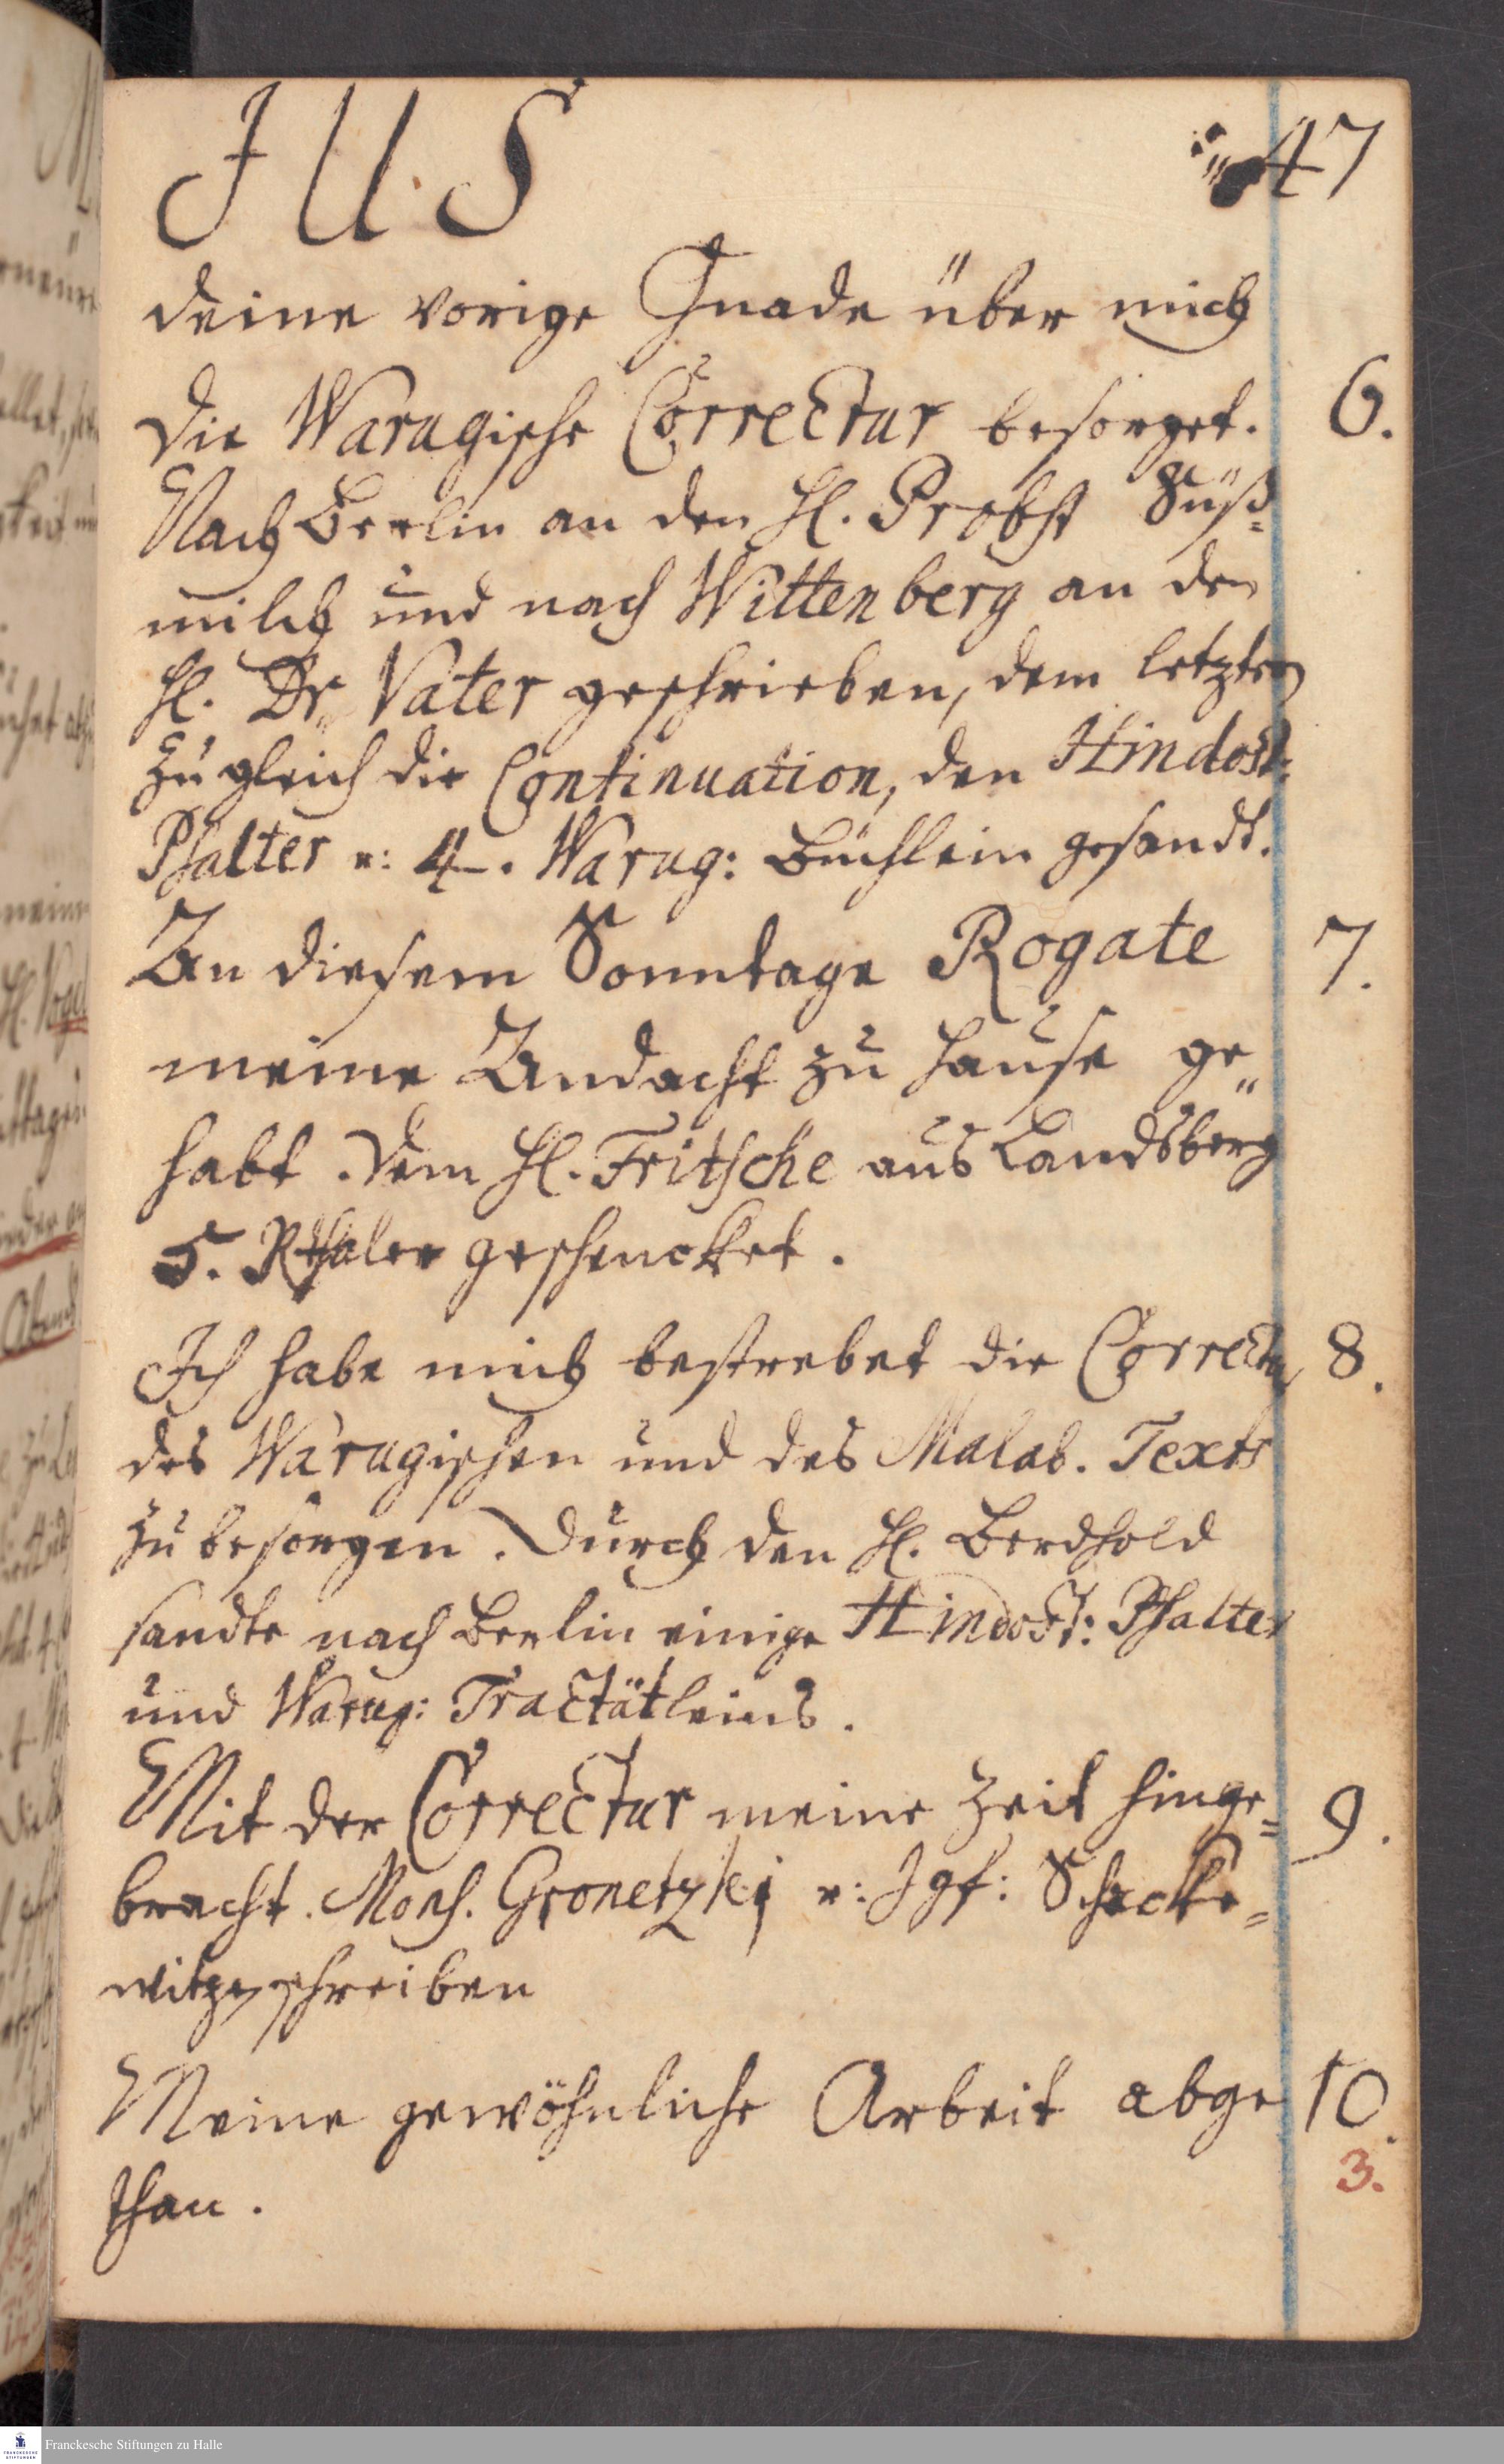 JUS
47
deine vorige Gnade über mich
die Warugische Correctur besorget. 6.
Nach Berlin an den H. Probst Süß=
milch und nach Wittenberg an den
H. Dr. Vater geschrieben, dem letztern
zugleich die Continuation, den Hindost:
Psalter u: 4. Warug: Büchlein gesandt.
An diesem Sonntage Rogate 7.
meine Andacht zu Hause ge„
habt. Dem H. Fritsche aus Landsberg
5. Rthaler geschencket.
Ich habe mich bestrebet die Correctur 8.
des Warugischen und des Malab. Texts
zu besorgen. Durch den H. Berdhold
sandte nach Berlin einige Hindost: Psalter
und Warug: Tractätleins.
Mit der Correctur meine Zeit hinge= 9.
bracht. Mons. Gronetzkj u: Jgf: Schacke=
witz schreiben
Meine gewöhnliche Arbeit abge 10.
than.
3.
Franckesche Stiftungen zu Halle